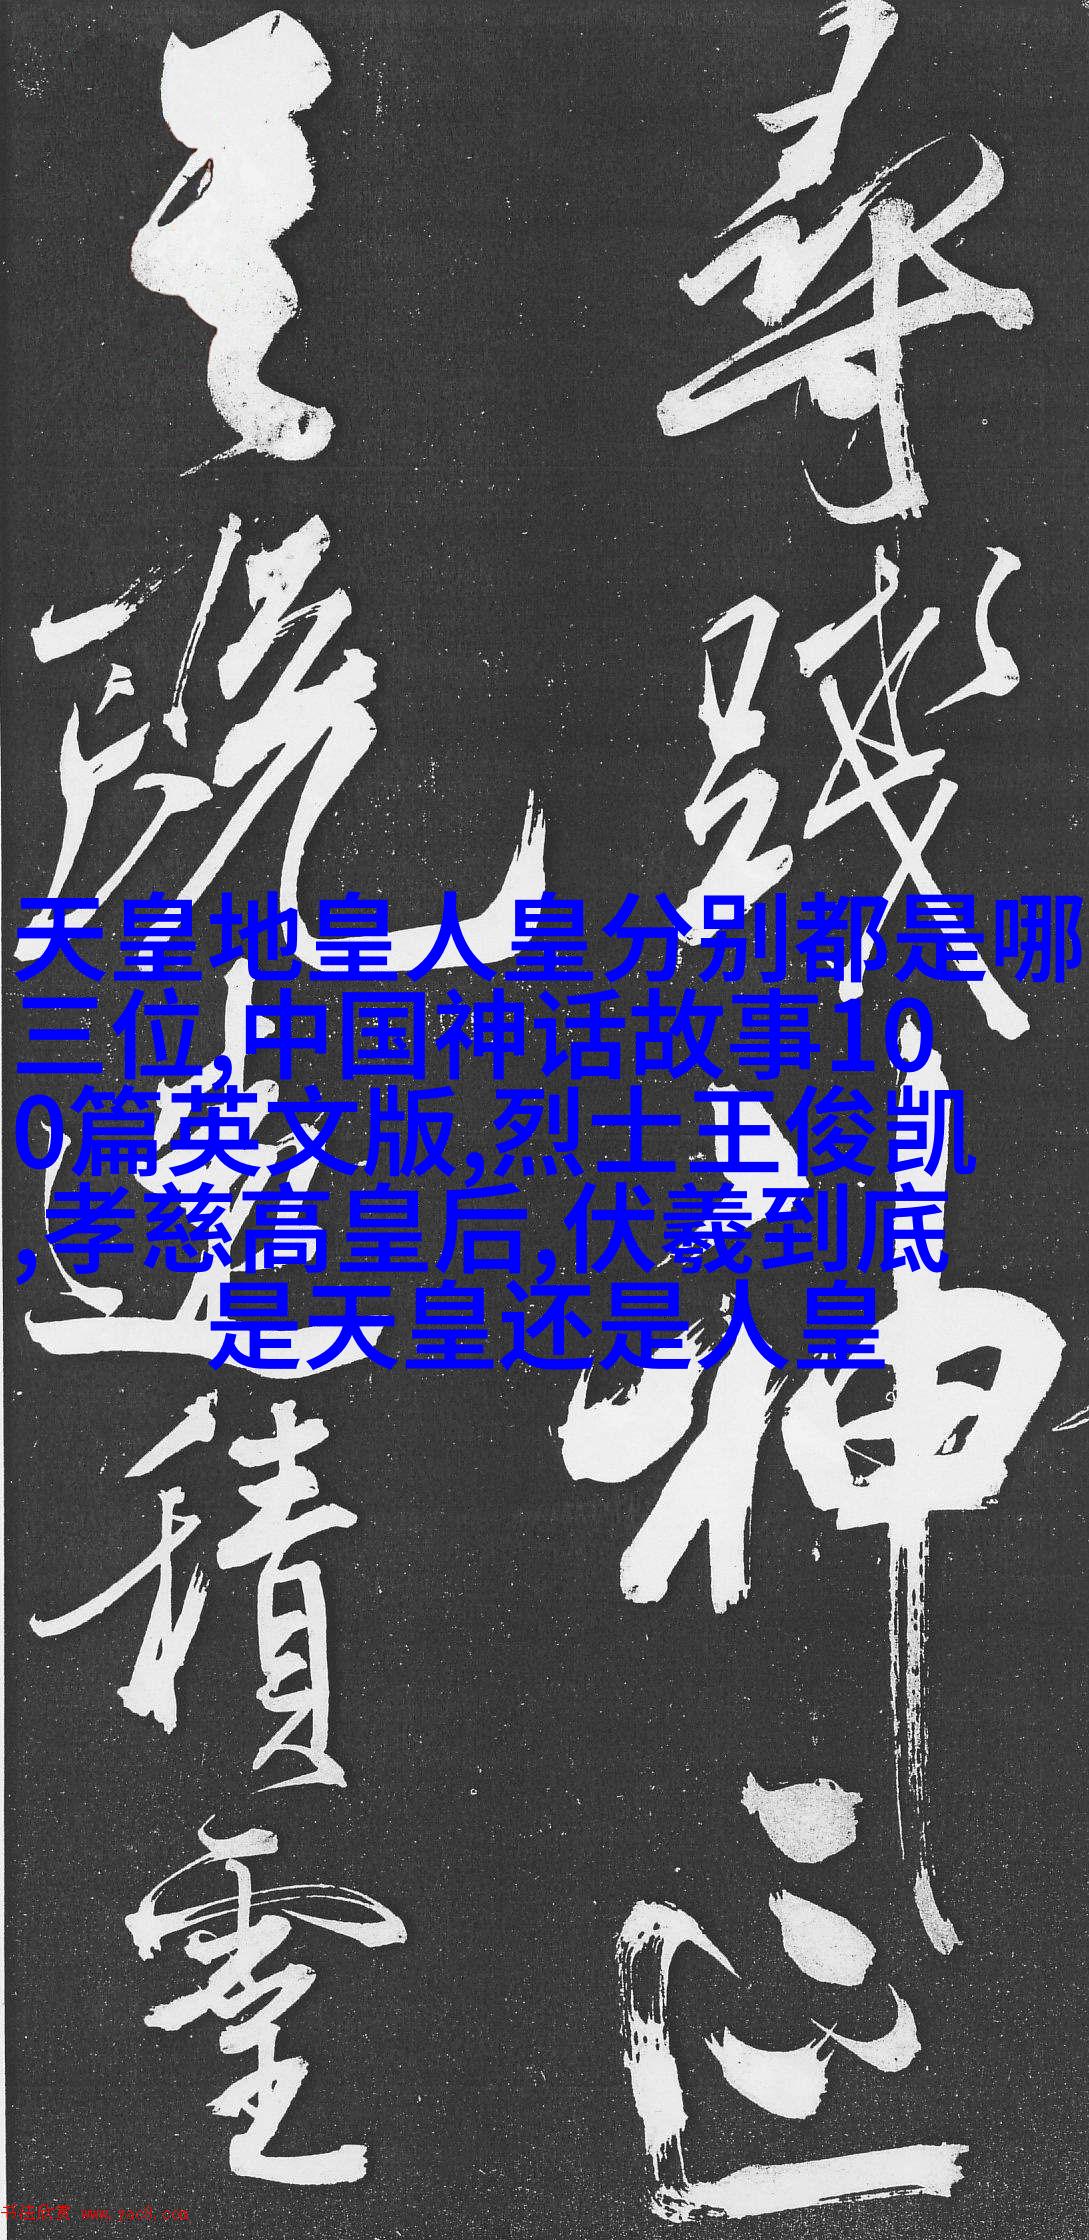 尋踐神
積靈
天皇地皇人皇分别都是哪
三位,中国神话故事10
0篇英文版,烈士王俊凯
,孝慈高皇后,伏羲到底
是天皇还是人皇
书法欣赏 www.yac8.com